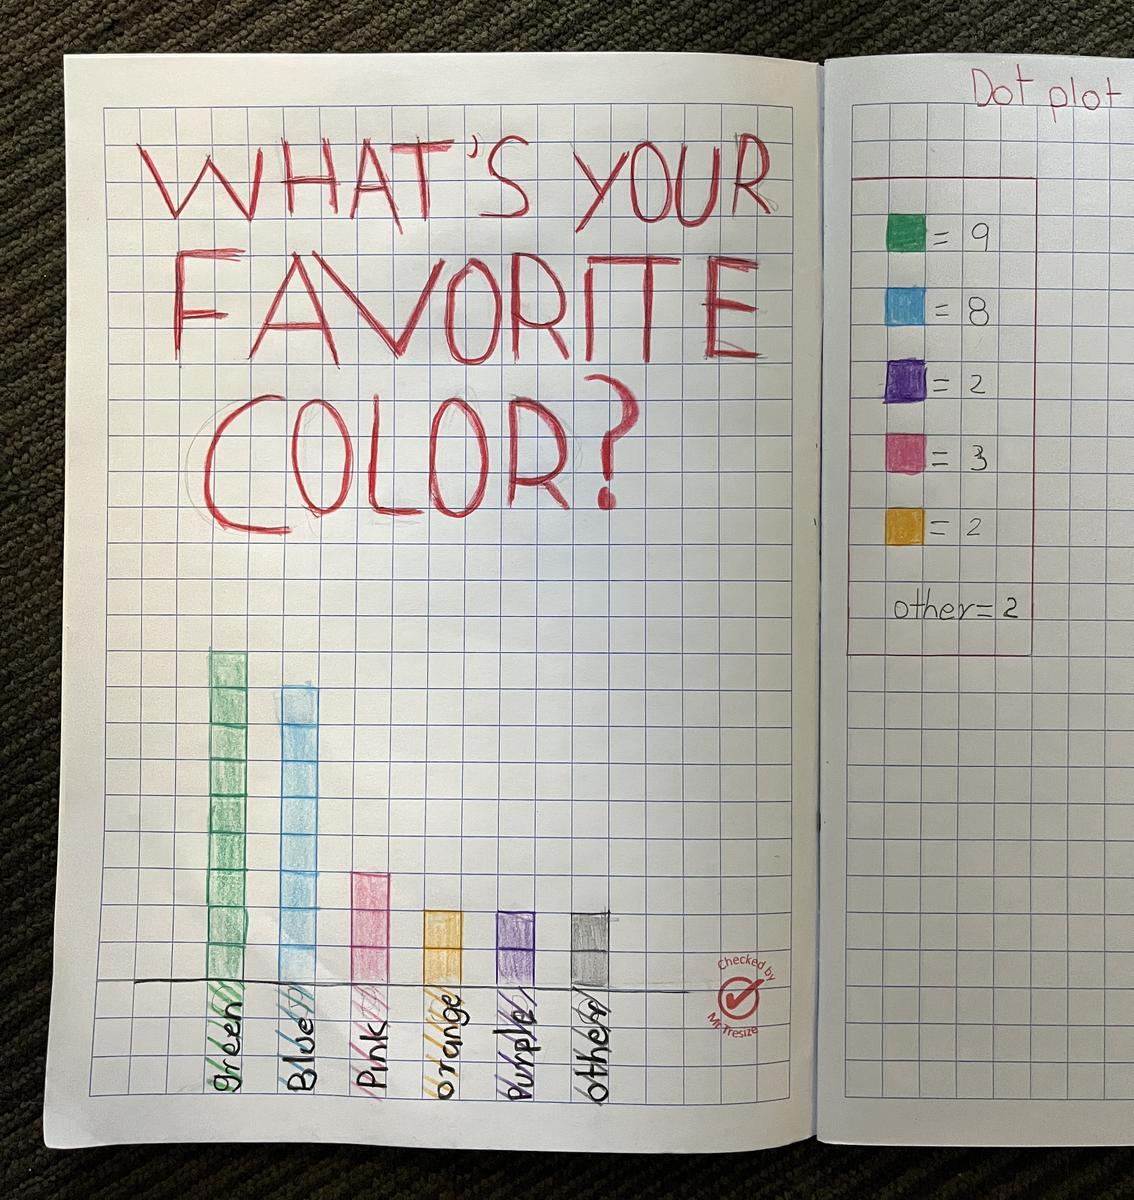 WHAT'S YOUR
FAVORITE
COLOR?
green
Blue
Pink
orange
Purple
other
Checked by
Mr Tresize
Dot plot
= 9
= 8
= 2
= 3
= 2
other= 2